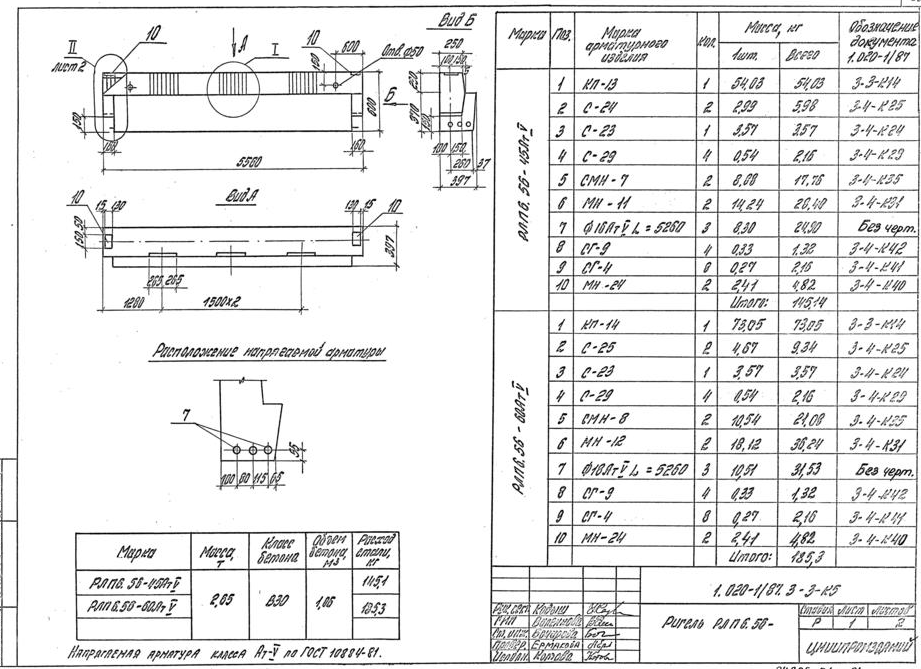 Вид Б
II
Лист 2
10
А
I
10
600
Отв. Ф50
100
250
100 150
220
600
Б
370
150
120
160
160
5560
100 150
260
37
397
Вид А
10
15 130
130 15
10
150 50
397
265 265
1280
1500×2
Расположение напрягаемой арматуры
7
55
100 80 115 65
Марка
Масса, т
Класс бетона
Объем бетона, м3
Расход стали, кг
РЛП6.56-45Ат V
2,65
В30
1,06
145,1
РЛП6.56-60Ат V
185,3
Напрягаемая арматура класса Ат-V по ГОСТ 10884-81.
Марка Поз. Марка арматурного изделия Кол. Масса, кг Обозначение документа 1.020-1/87
1шт. Всего
РЛП6.56-45Ат V
1 КП-13 1 54,03 54,03 3-3-К14
2 С-24 2 2,99 5,98 3-4-К25
3 С-23 1 3,57 3,57 3-4-К24
4 С-29 4 0,54 2,16 3-4-К29
5 СМН-7 2 8,88 17,76 3-4-К35
6 МН-11 2 14,24 28,48 3-4-К31
7 Ф16Ат V L=5260 3 8,30 24,90 Без черт.
8 СГ-9 4 0,33 1,32 3-4-К42
9 СГ-4 8 0,27 2,16 3-4-К41
10 МН-24 2 2,41 4,82 3-4-К40
Итого: 145,14
РЛП6.56-60Ат V
1 КП-14 1 73,05 73,05 3-3-К14
2 С-25 2 4,67 9,34 3-4-К25
3 С-23 1 3,57 3,57 3-4-К24
4 С-29 4 0,54 2,16 3-4-К29
5 СМН-8 2 10,54 21,08 3-4-К35
6 МН-12 2 18,12 36,24 3-4-К31
7 Ф18Ат V L=5260 3 10,51 31,53 Без черт.
8 СГ-9 4 0,33 1,32 3-4-К42
9 СГ-4 8 0,27 2,16 3-4-К41
10 МН-24 2 2,41 4,82 3-4-К40
Итого: 185,3
1.020-1/87. 3-3-К5
Ригель РЛП6.56-
Стадия Лист Листов
Р 1 2
ЦНИИПромзданий